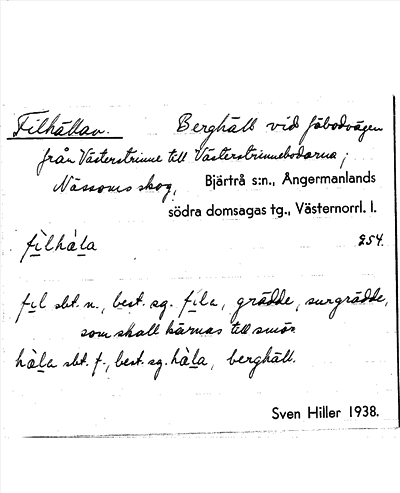 Filhällan. Berghäll vid fäbodvägen
från Västerstrinne till Västerstrinnebodarna;
Nässoms skog, Bjärtrå s:n., Ångermanlands
södra domsagas tg., Västernorrl. l.
filhàla 254.
fil sbt. n., best. sg. fila, grädde, surgrädde,
som skall kärnas till smör.
hàla sbt. f., best. sg. hàla, berghäll.
Sven Hiller 1938.